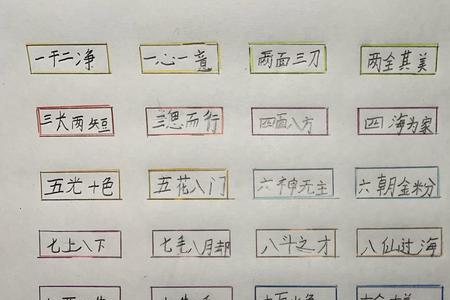 一干二净 一心一意 两面三刀 两全其美
三长两短 三思而行 四面八方 四海为家
五光十色 五花八门 六神无主 六朝金粉
七上八下 七手八脚 八斗之才 八仙过海